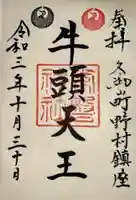 奉拝
久御山町野村鎮座
牛頭天王
令和三年十月三十日